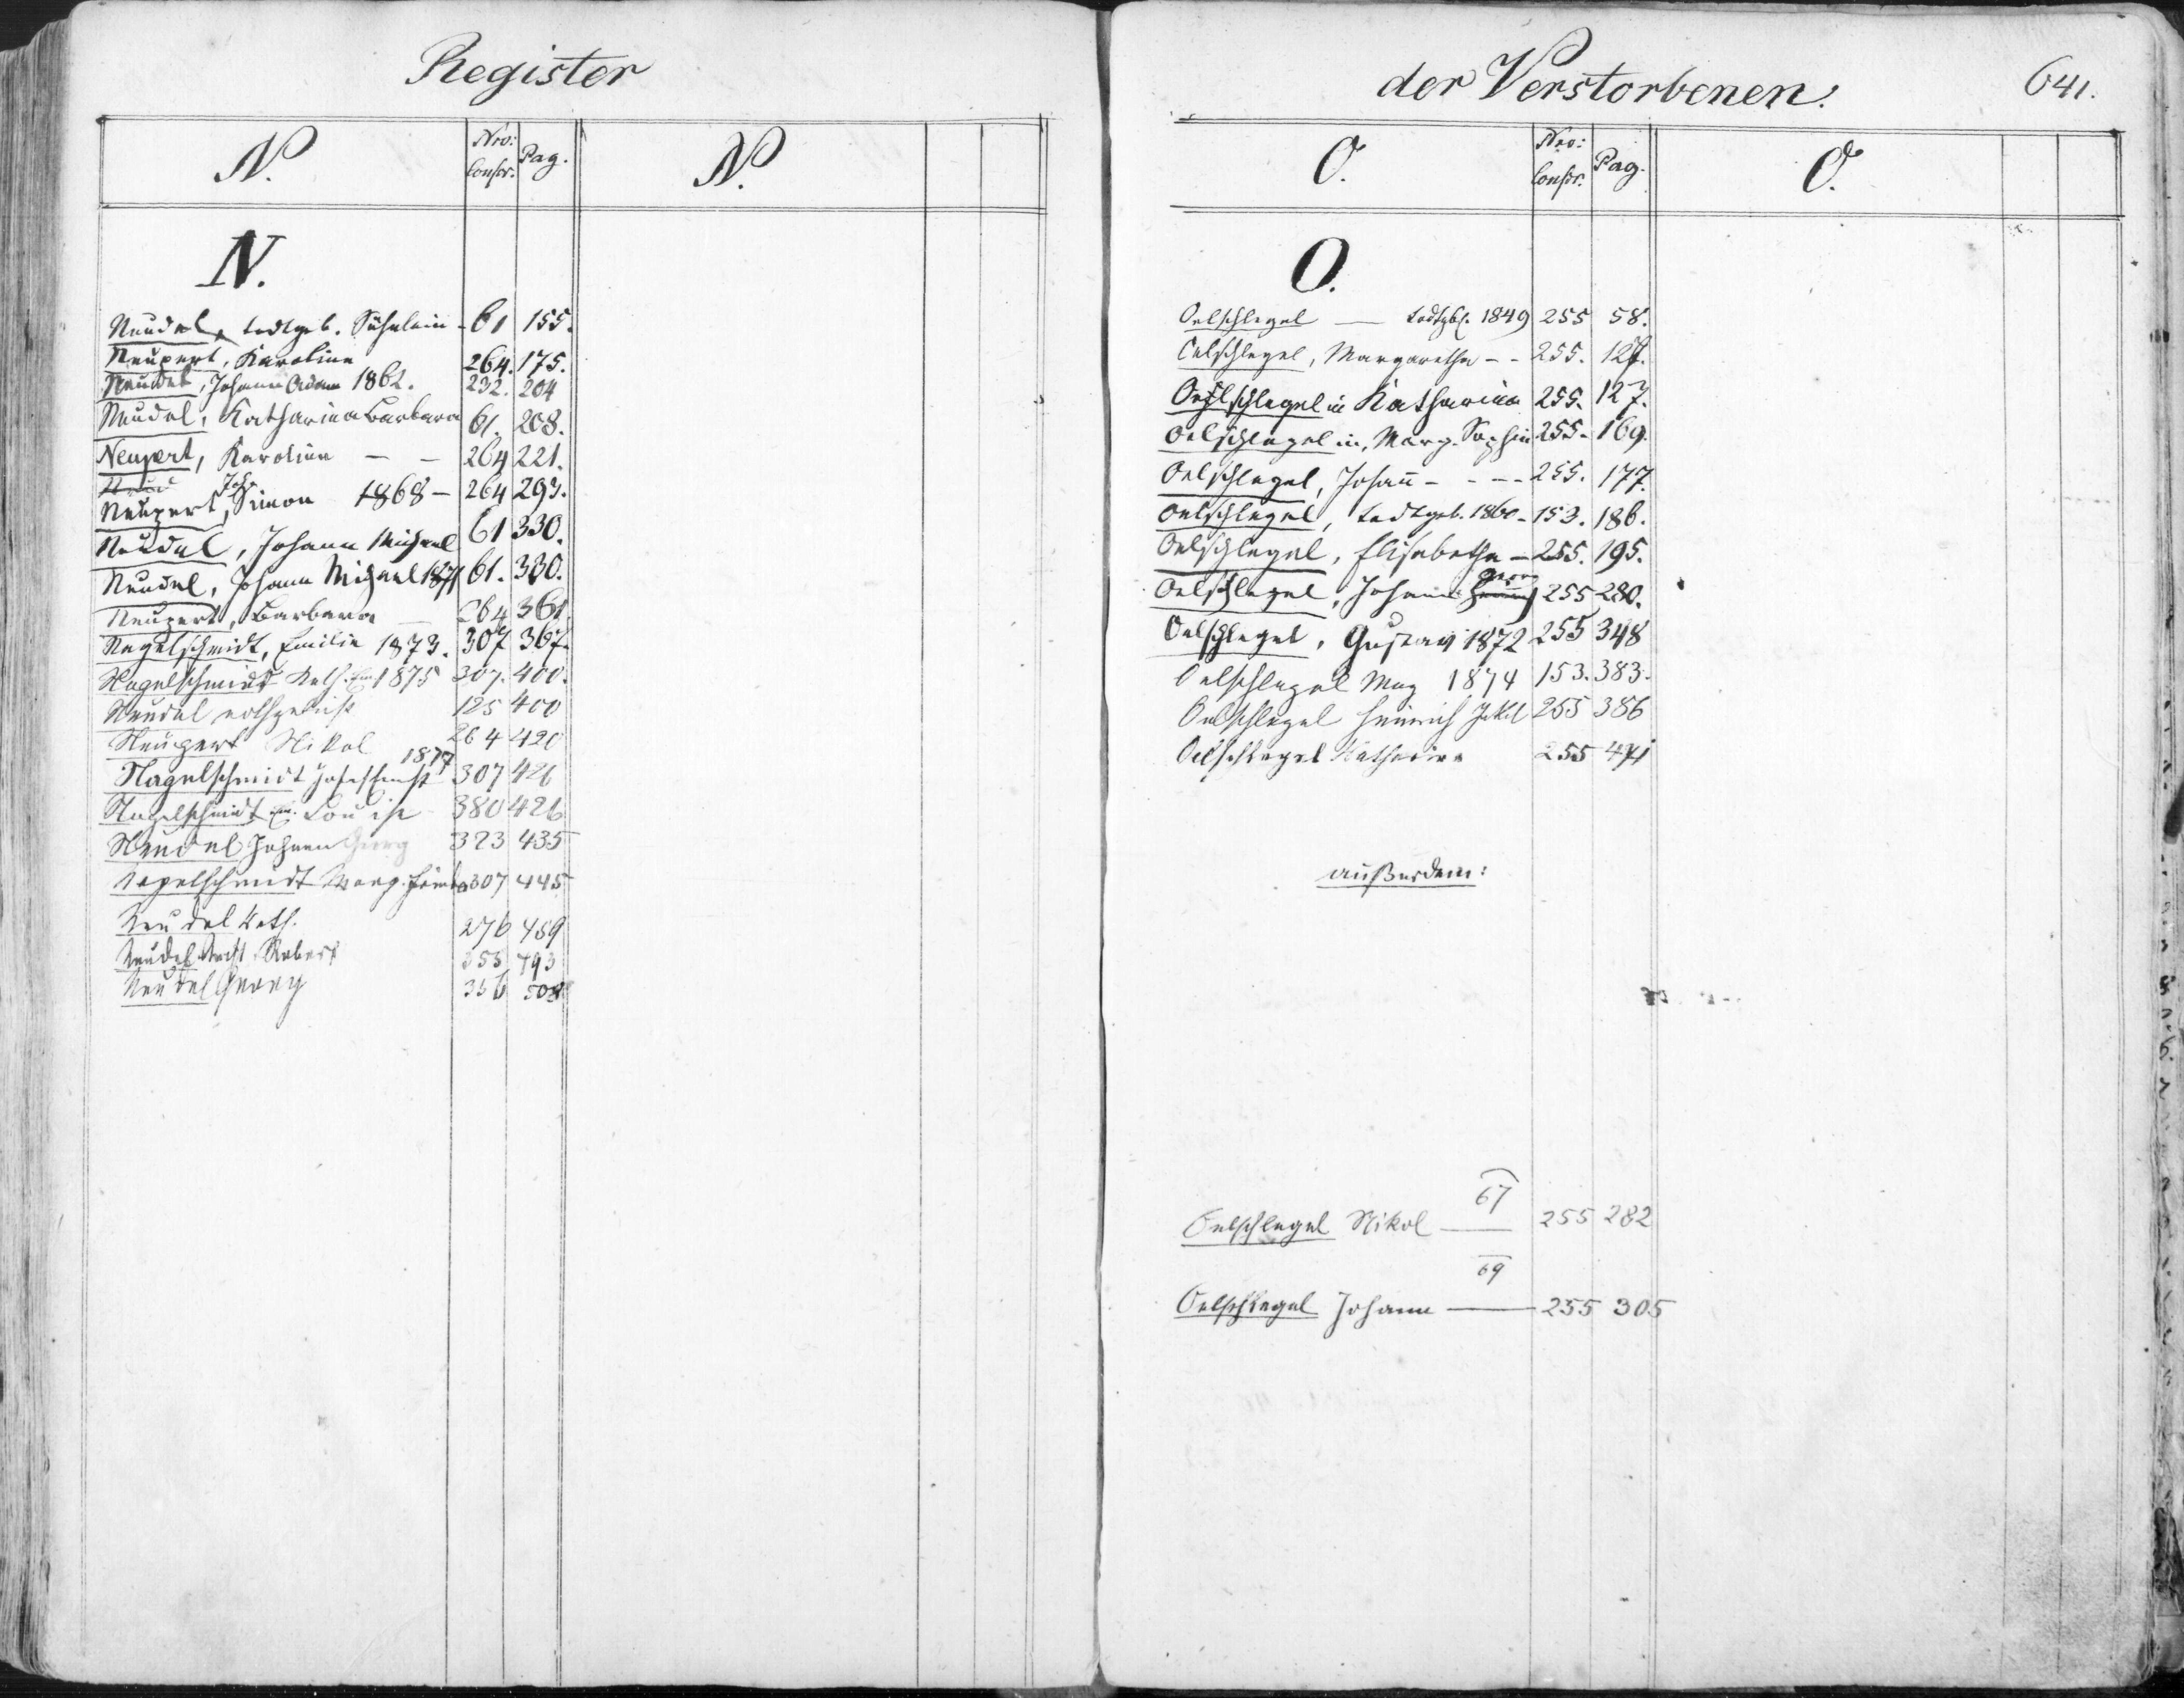 Register
N.
Nro: Conscr.
Pag.
N.
N.
Neudel, todtgeb. Söhnlein - 61 155.
Neupert, Karoline 264. 175.
Neudel, Johann Adam 1862. 232. 204
Neudel, Katharina Barbara 61. 208.
Neupert, Karoline — — 264 221.
Neud
Joh.
Neupert, Simon 1868 — 264 293.
Neudel, Johann Michael 61 330.
Neudel, Johann Michael 1871 61. 330.
Neupert, Barbara — 264 361
Nagelschmidt, Emilie 1873. 307 367.
Nagelschmidt Kath. 1875 307. 400.
Neudel nothgetauft 125 400
Neupert Nikol 264 420
1877
Nagelschmidt Josef Ernst 307 426
Nagelschmidt Louise 380 426
Neudel Johann Georg 323 435
Nagelschmidt Marg. 307 445
Neudel Kath. 276 459
Neudel Robert 355 493
Neudel Georg 356 508
der Verstorbenen.
641.
O.
Nro: Conscr.
Pag.
O.
O.
Oelschlegel — todtgb. 1849 255 58.
Oelschlegel, Margaretha - - 255. 127.
Oelschlegel in Katharina 255. 127.
Oelschlegel in, Marg. Sophia 255 - 169.
Oelschlegel, Johann - - - - 255. 177.
Oelschlegel, todtgeb. 1860 - 153. 186.
Oelschlegel, Elisabetha — 255. 195.
Georg
Oelschlegel, Johann 255 280.
Oelschlegel, Gustav 1872 255 348
Oelschlegel Mag 1874 153. 383.
Oelschlegel Heinrich 255 386
Oelschlegel Katharina 255 471
außerdem:
67
Oelschlegel Nikol — 255 282
69
Oelschlegel Johann — 255 305